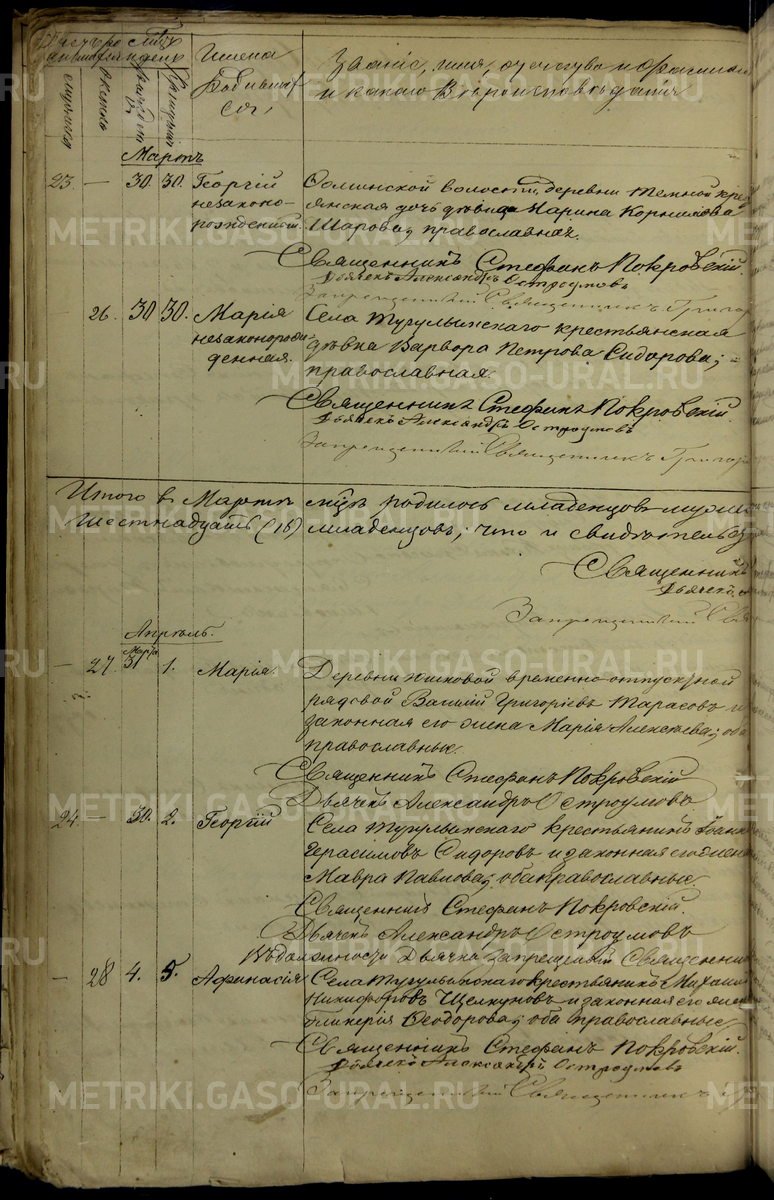 Имена
родивших
ся
Званіе, имя, отчество и фамилія
и какого вѣроисповѣданія
мужска
женска
рожденія
крещенія
Мартъ
23. — 30. 30. Георгій незаконо- рожденный. волости, деревни Темной кре
янская дочь дѣвица Марина Корнилова
Шарова, православная.
Священникъ Стефанъ Покровскій
Дьячекъ Александръ Остроумовъ
Запрещенный Священникъ Григор
26. 30 30. Марія незаконорож- денная. Села Тугулымскаго крестьянская
дѣвка Варвора Петрова Сидорова;
православная.
Священникъ Стефанъ Покровскій.
Дьячекъ Александръ Остроумовъ
Запрещенный Священникъ Григор
Итого въ Мартѣ мцѣ родилось младенцовъ муж
шестнадцать (16) младенцовъ; что и свидѣтель
Священникъ
Дьячекъ
Запрещенный Свя
Апрѣль.
— 27. Март 31 1. Марія. Деревни временно-отпускной
рядовой Василій Григоріевъ Тарасовъ и
законная его жена Марія Алексѣева; оба
православные.
Священникъ Стефанъ Покровскій
Дьячекъ Александръ Остроумовъ
24 — 30. 2. Георгій Села Тугулымскаго крестьянинъ Іоанн
Герасимовъ Сидоровъ и законная его жена
Мавра Павлова; оба православные.
Священникъ Стефанъ Покровскій.
Дьячекъ Александръ Остроумовъ
Въ должности Дьячка запрещенный Священник
— 28 4. 5. Афанасія Села Тугулымскаго крестьянинъ Михаил
Никифоровъ Щелкуновъ и законная его жен
Гликерія Феодорова; оба православные
Священникъ Стефанъ Покровскій.
Дьячекъ Александръ Остроумовъ
Запрещенный Священникъ
METRIKI.GASO-URAL.RU